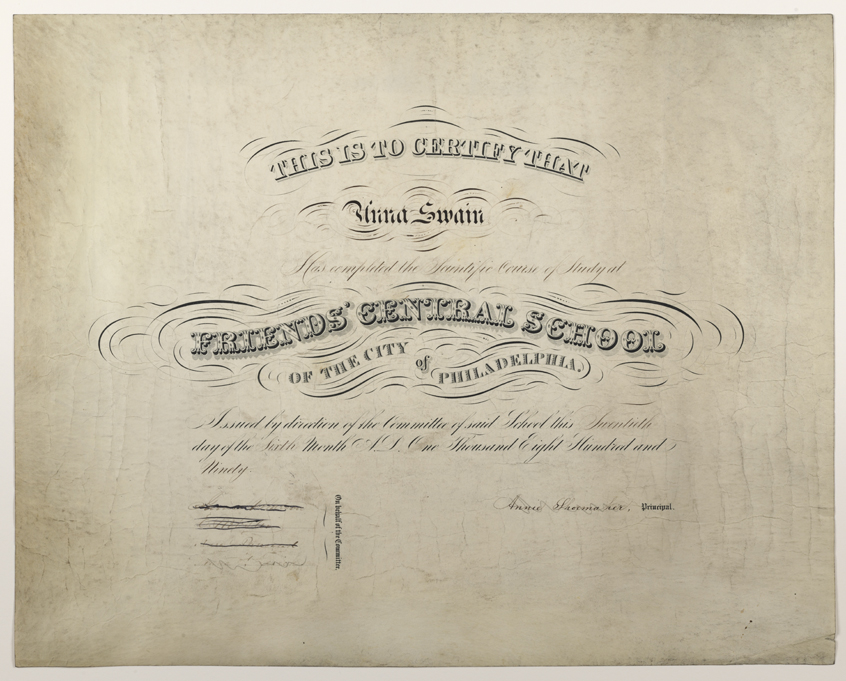 THIS IS TO CERTIFY THAT
Anna Swain
Has completed the Scientific Course of Study at
FRIENDS' CENTRAL SCHOOL
OF THE CITY of PHILADELPHIA.
Issued by direction of the Committee of said School this Twentieth
day of the Sixth Month A.D. One Thousand Eight Hundred and
Ninety
Annie Shoemaker, Principal.
On behalf of the Committee.